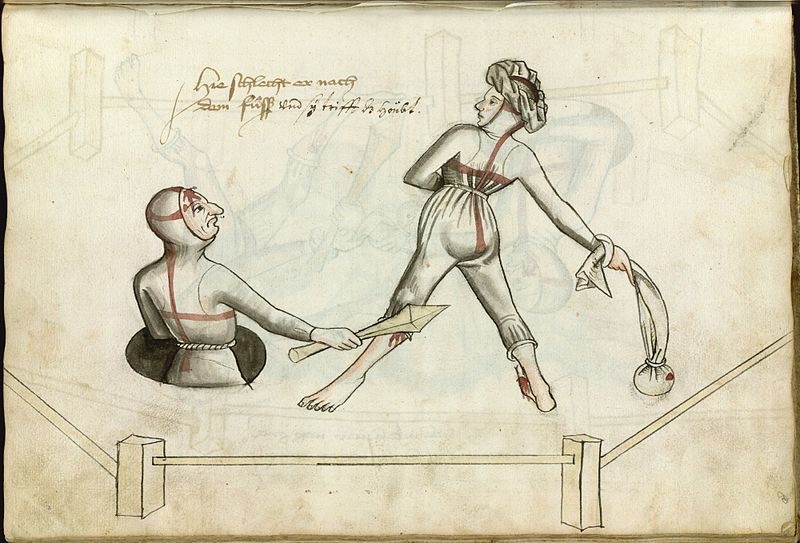 Hie schlecht er nach
dem fůsß Vnd sÿ trifft dz Hoübt.